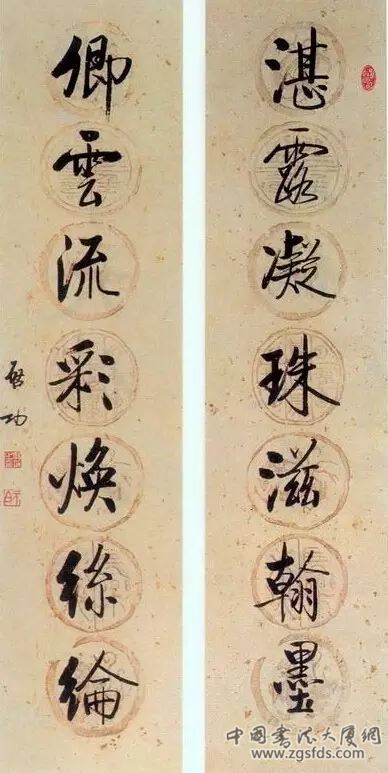 湛露凝珠滋翰墨
卿雲流彩煥絲綸
啓功
中國書法大廈網
www.zgsfds.com